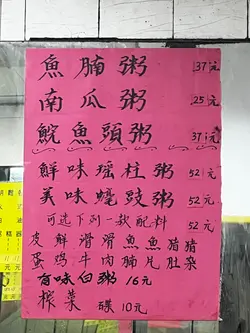 魚腩粥 37元
南瓜粥 25元
鯇魚頭粥 37元
鮮味瑶柱粥 52元
美味蠔豉粥 52元
可选下列一款配料 52元
皮鮮滑滑魚魚猪猪
蛋鸡牛肉腩片肚杂
有味白粥 16元
榨菜 碟 10元